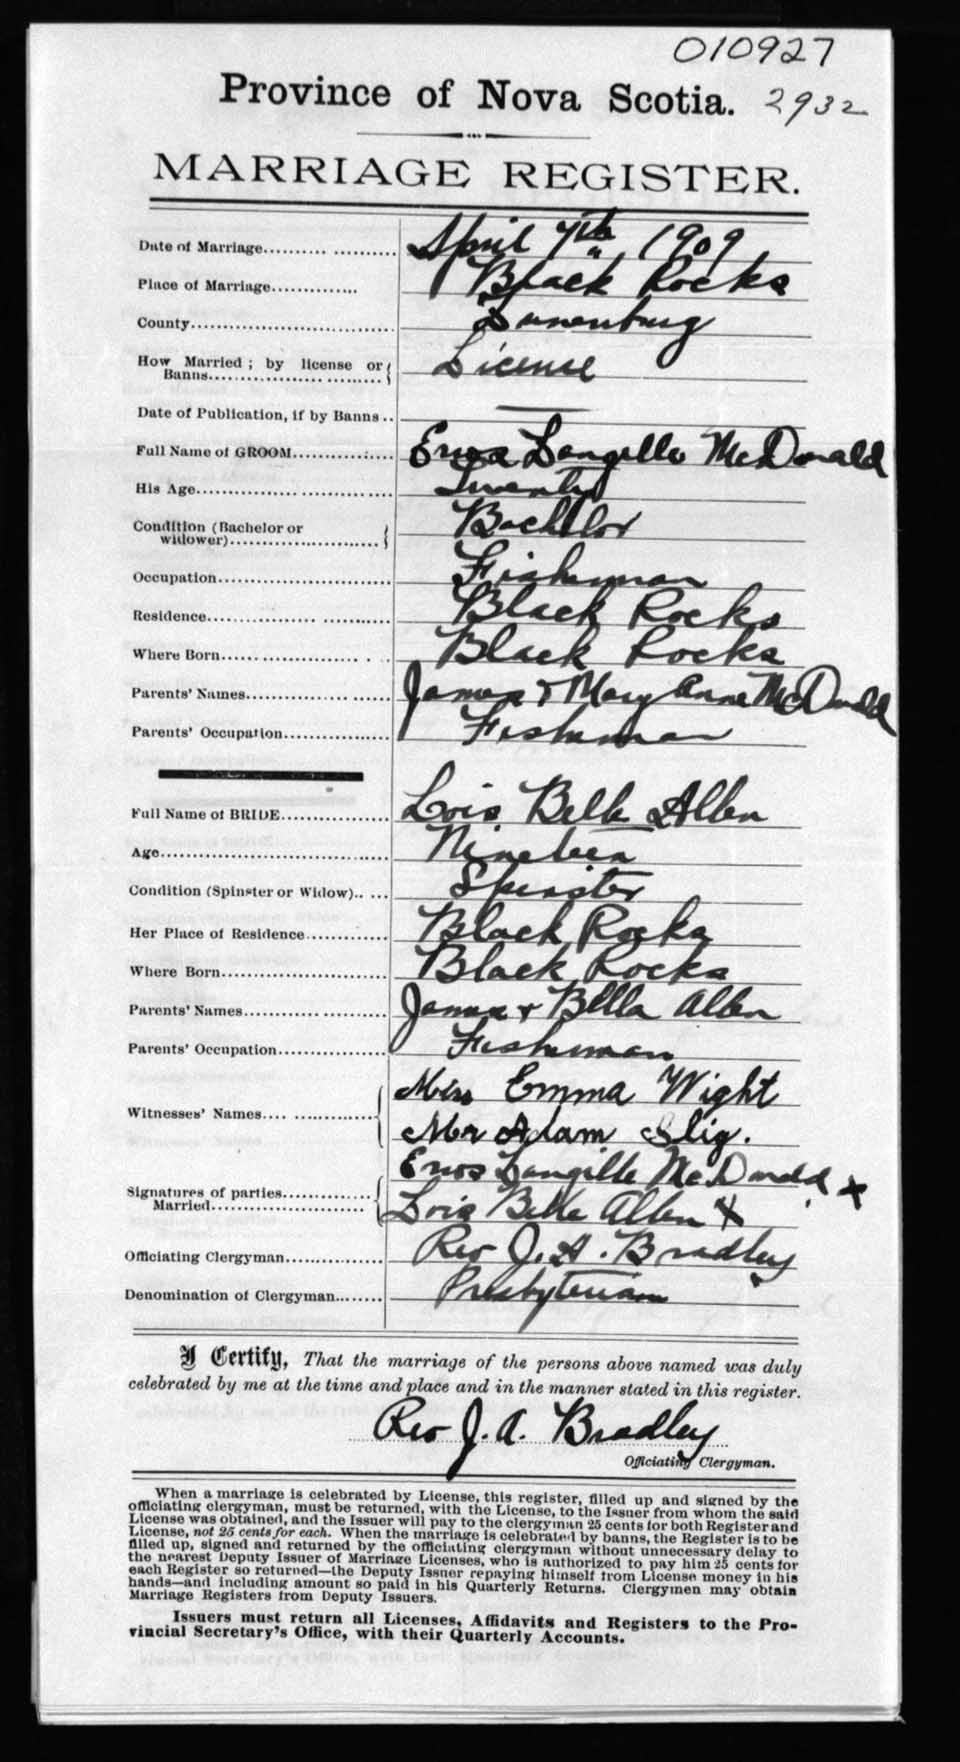 010927
Province of Nova Scotia. 2932
MARRIAGE REGISTER.
Date of Marriage........... April 7th 1909
Place of Marriage............ Black Rocks
County............................ Lunenburg
How Married; by license or
Banns............................ License
Date of Publication, if by Banns .. —
Full Name of GROOM............... Enos Langille McDonald
His Age............................ Twenty
Condition (Bachelor or
widower)......................... Bachelor
Occupation......................... Fisherman
Residence.......................... Black Rocks
Where Born......................... Black Rocks
Parents' Names..................... James & Mary Anne McDonald
Parents' Occupation................ Fisherman
Full Name of BRIDE................. Lois Belle Allen
Age................................ Nineteen
Condition (Spinster or Widow)..... Spinster
Her Place of Residence............ Black Rocks
Where Born......................... Black Rocks
Parents' Names..................... James & Bella Allen
Parents' Occupation................ Fisherman
Miss Emma Wight
Witnesses' Names...................
Mr Adam Slig.
Enos Langille McDonald X
Signatures of parties..............
Married............................ Lois Belle Allen X
Officiating Clergyman.............. Rev J. A. Bradley
Denomination of Clergyman........ Presbyterian
I Certify, That the marriage of the persons above named was duly
celebrated by me at the time and place and in the manner stated in this register.
Rev J. A. Bradley
Officiating Clergyman.
When a marriage is celebrated by License, this register, filled up and signed by the
officiating clergyman, must be returned, with the License, to the Issuer from whom the said
License was obtained, and the Issuer will pay to the clergyman 25 cents for both Register and
License, not 25 cents for each. When the marriage is celebrated by banns, the Register is to be
filled up, signed and returned by the officiating clergyman without unnecessary delay to
the nearest Deputy Issuer of Marriage Licenses, who is authorized to pay him 25 cents for
each Register so returned—the Deputy Issuer repaying himself from License money in his
hands—and including amount so paid in his Quarterly Returns. Clergymen may obtain
Marriage Registers from Deputy Issuers.
Issuers must return all Licenses, Affidavits and Registers to the Pro-
vincial Secretary's Office, with their Quarterly Accounts.